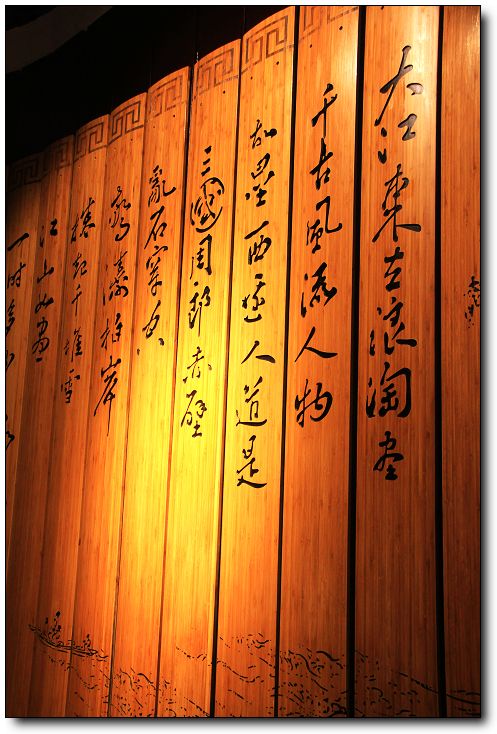 大江東去浪淘盡
千古風流人物
故壘西邊人道是
三國周郎赤壁
亂石穿空
驚濤拍岸
捲起千堆雪
江山如畫
一時多少